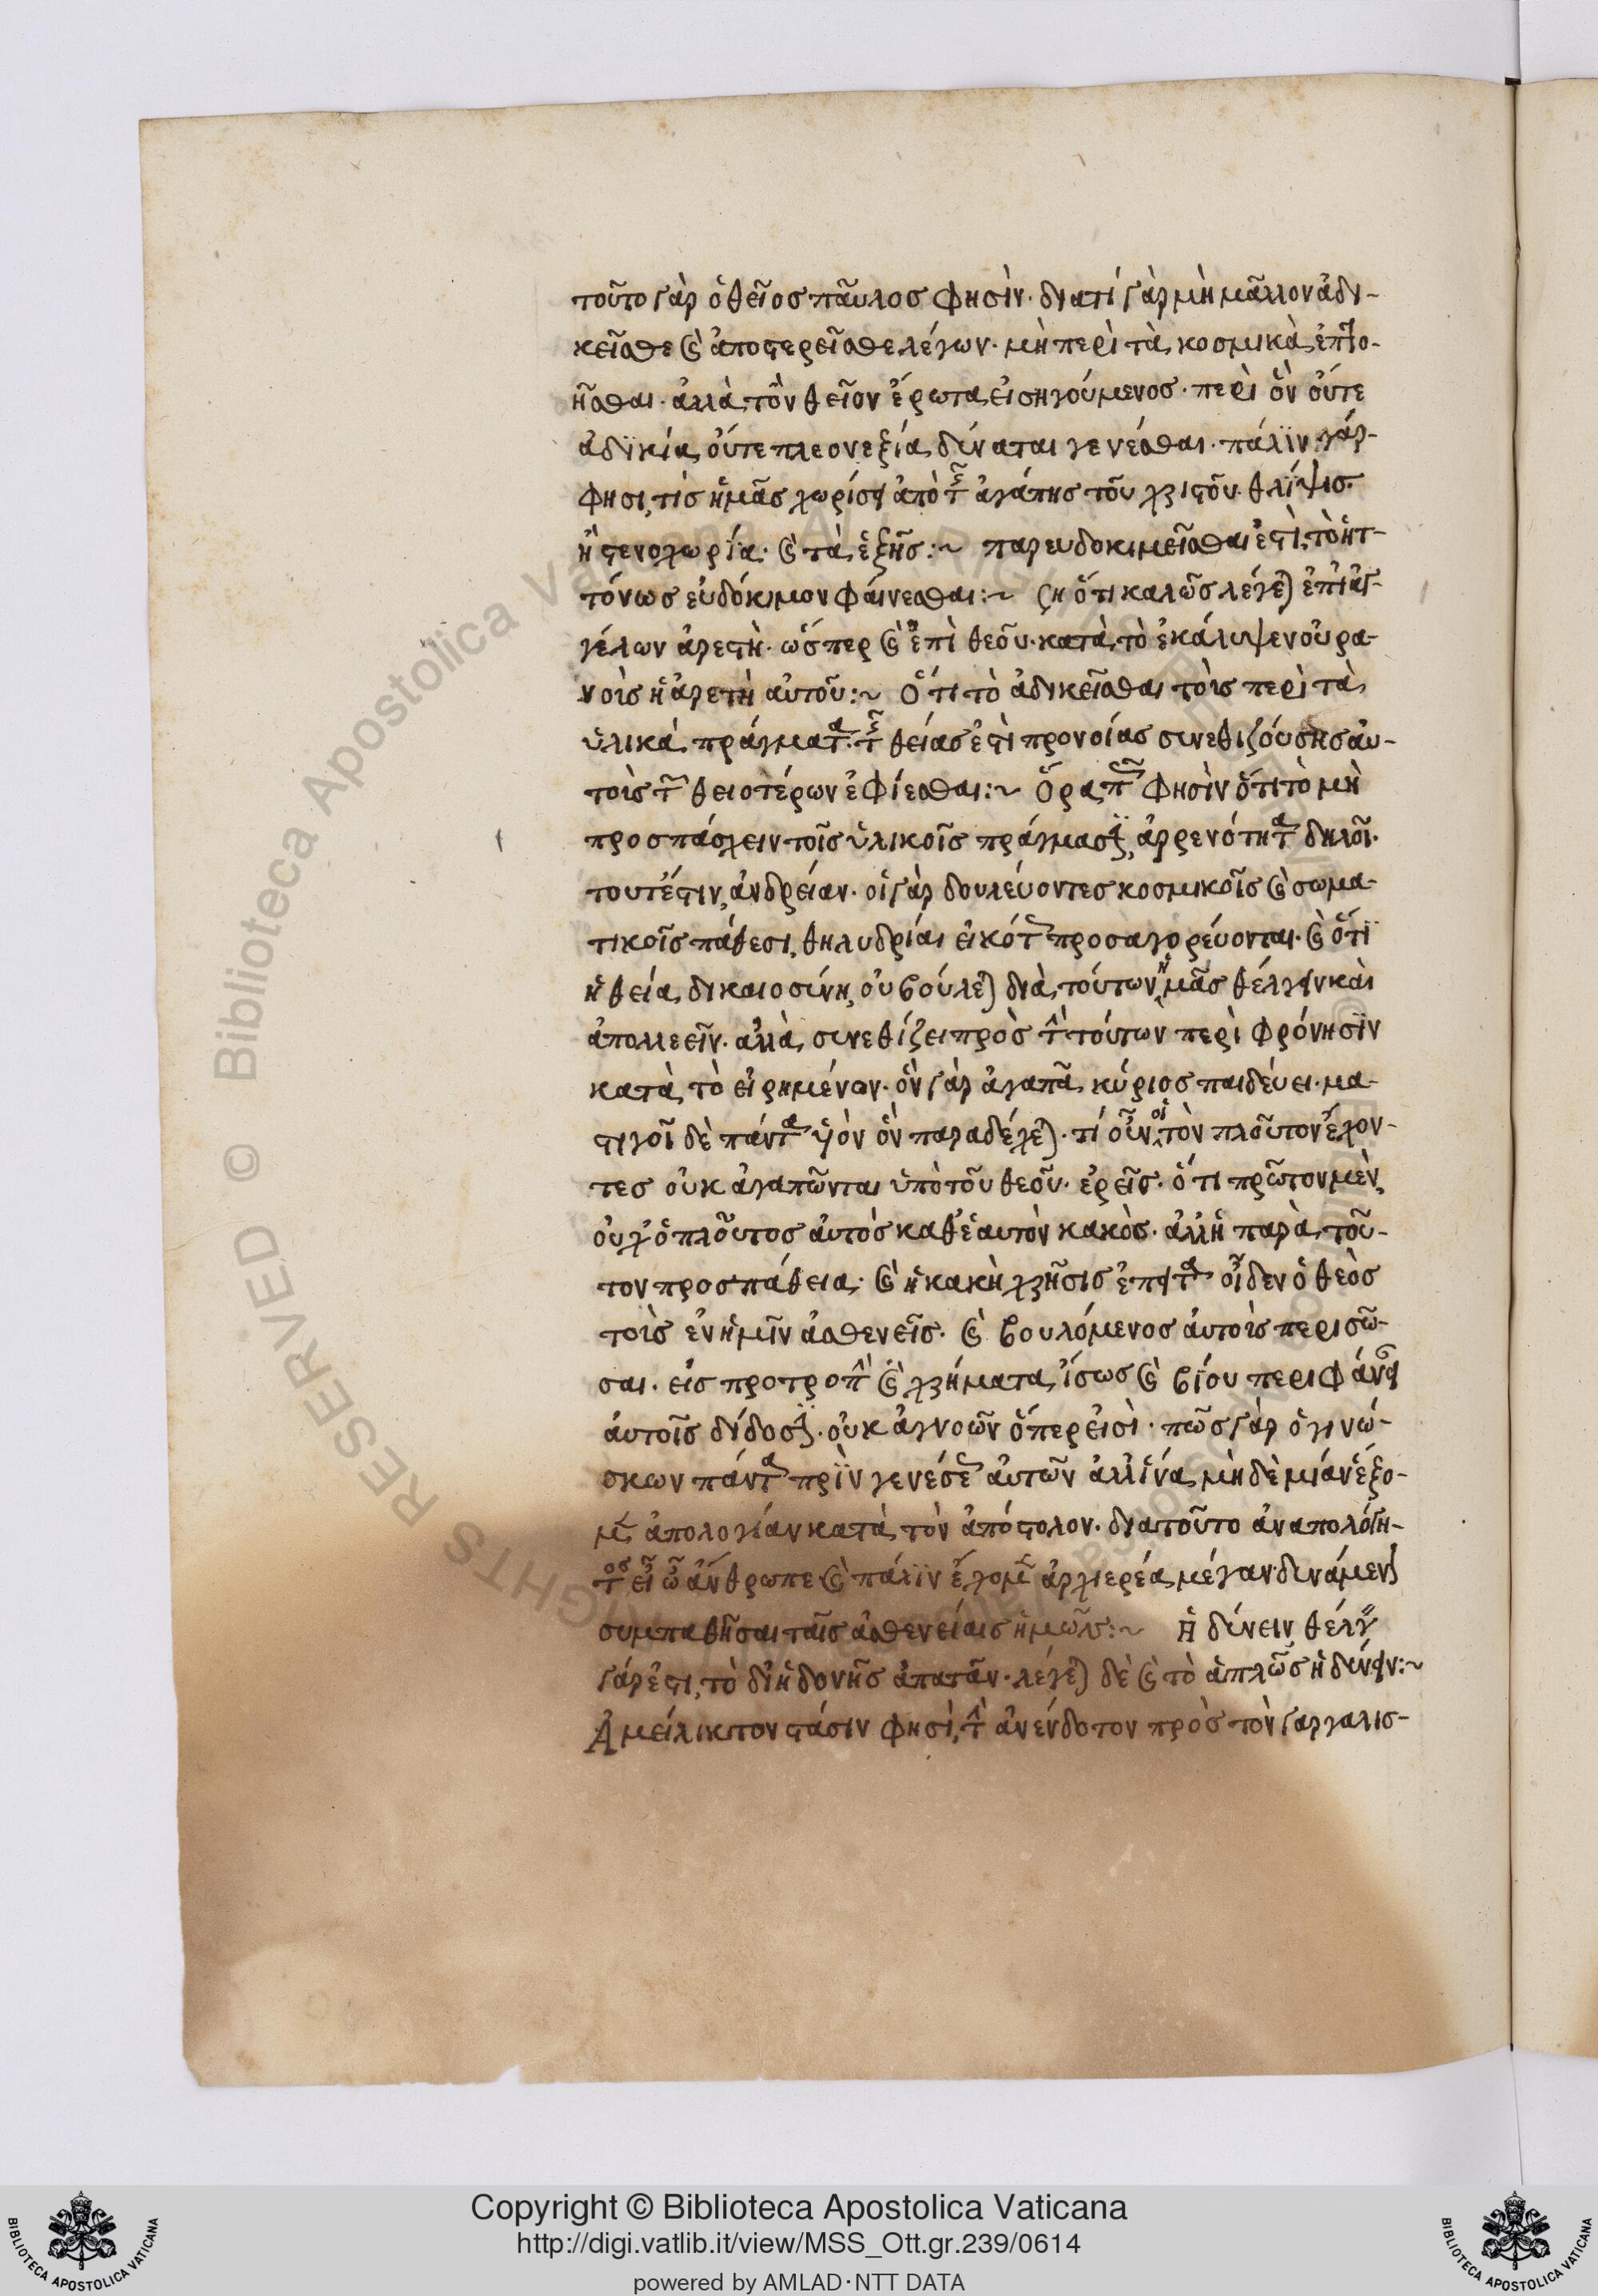 τοῦτο γὰρ ὁ θεῖος παῦλος φησὶν· διατί γὰρ μὴ μᾶλλον ἀδι-
κεῖσθε καὶ ἀποστερεῖσθε λέγων· μὴ περὶ τὰ κοσμικὰ ἐπτο-
ῆσθαι· ἀλλὰ τὸν θεῖον ἔρωτα εἰσηγούμενος· περὶ ὃν οὔτε
ἀδικία οὔτε πλεονεξία δύναται γενέσθαι· πάλιν γάρ
φησι, τίς ἡμᾶς χωρίσει ἀπὸ τῆς ἀγάπης τοῦ χριστοῦ· θλίψις
ἢ στενοχωρία· καὶ τὰ ἑξῆς:~ παρευδοκιμεῖσθαι ἐστὶ, τὸ ἡτ-
τόνως εὐδόκιμον φαίνεσθαι:~ ὅτι καλῶς λέγεται ἐπὶ ἀγ-
γέλων ἀρετὴ· ὥσπερ καὶ ἐπὶ θεοῦ· κατὰ τὸ ἐκάλυψεν οὐρα-
νοὺς ἡ ἀρετὴ αὐτοῦ:~ Ὅτι τὸ ἀδικεῖσθαι τοὺς περὶ τὰ
ὑλικὰ πράγματα· τῆς θείας ἐστὶ προνοίας συνεθιζούσης αὐ-
τοὺς τῶν θειοτέρων ἐφίεσθαι:~ Ὅρα πῶς φησὶν ὅτι τὸ μὴ
προσπάσχειν τοῖς ὑλικοῖς πράγμασιν, ἀρρενότητα δηλοῖ·
τουτέστιν, ἀνδρείαν· οἱ γὰρ δουλεύοντες κοσμικοῖς καὶ σωμα-
τικοῖς πάθεσι, θηλυδρίαι εἰκότως προσαγορεύονται· καὶ ὅτι
ἡ θεία δικαιοσύνη, οὐ βούλεται διὰ τούτων ἡμᾶς θέλγειν καὶ
ἀπολλεεῖν· ἀλλὰ συνεθίζει πρὸς τὴν τούτων περὶ φρόνησιν
κατὰ τὸ εἰρημένων· ὃν γὰρ ἀγαπᾶ κύριος παιδεύει· μα-
στιγοῖ δὲ πάντα υἱὸν ὃν παραδέχεται· τί οὖν οἱ τὸν πλοῦτον ἔχον-
τες οὐκ ἀγαπῶνται ὑπὸ τοῦ θεοῦ· ἐρεῖς· ὅτι πρῶτον μὲν
οὐχ ὁ πλοῦτος αὐτὸς καθ' ἑαυτὸν κακὸς· ἀλλ' ἡ παρὰ τοῦ-
τον προσπάθεια· καὶ ἡ κακὴ χρῆσις ἔπειτα οἶδεν ὁ θεὸς
τοὺς ἐν ἡμῖν ἀσθενεῖς· καὶ βουλόμενος αὐτοὺς περισῶ-
σαι· εἰς προτροπὴν καὶ χρήματα ἴσως καὶ βίου περιφάνειαν
αὐτοῖς δίδοσιν· οὐκ ἀγνοῶν ὅπερ εἰσὶ· πῶς γὰρ ὁ γινώ-
σκων πάντα πρὶν γενέσεως αὐτῶν ἀλλ' ἵνα μὴ δὲ μίαν ἕξο-
μεν ἀπολογίαν κατὰ τὸν ἀπόστολον· διατοῦτο ἀναπολόγη-
τος εἶ ὦ ἄνθρωπε· καὶ πάλιν ἔχομεν ἀρχιερέα μέγαν· δυνάμενον
συμπαθῆσαι ταῖς ἀσθενείαις ἡμῶν:~ Ἡδύνειν θέλγειν
γάρ ἐστι, τὸ δι' ἡδονῆς ἀπατᾶν· λέγεται δὲ καὶ τὸ ἁπλῶς ἡδύνειν:~
Ἀμείλικτον στάσιν φησὶ, τὴν ἀνένδοτον πρὸς τὸν γαργαλισ-
Copyright © Biblioteca Apostolica Vaticana
http://digi.vatlib.it/view/MSS_Ott.gr.239/0614
powered by AMLAD·NTT DATA
BIBLIOTECA APOSTOLICA VATICANA
BIBLIOTECA APOSTOLICA VATICANA